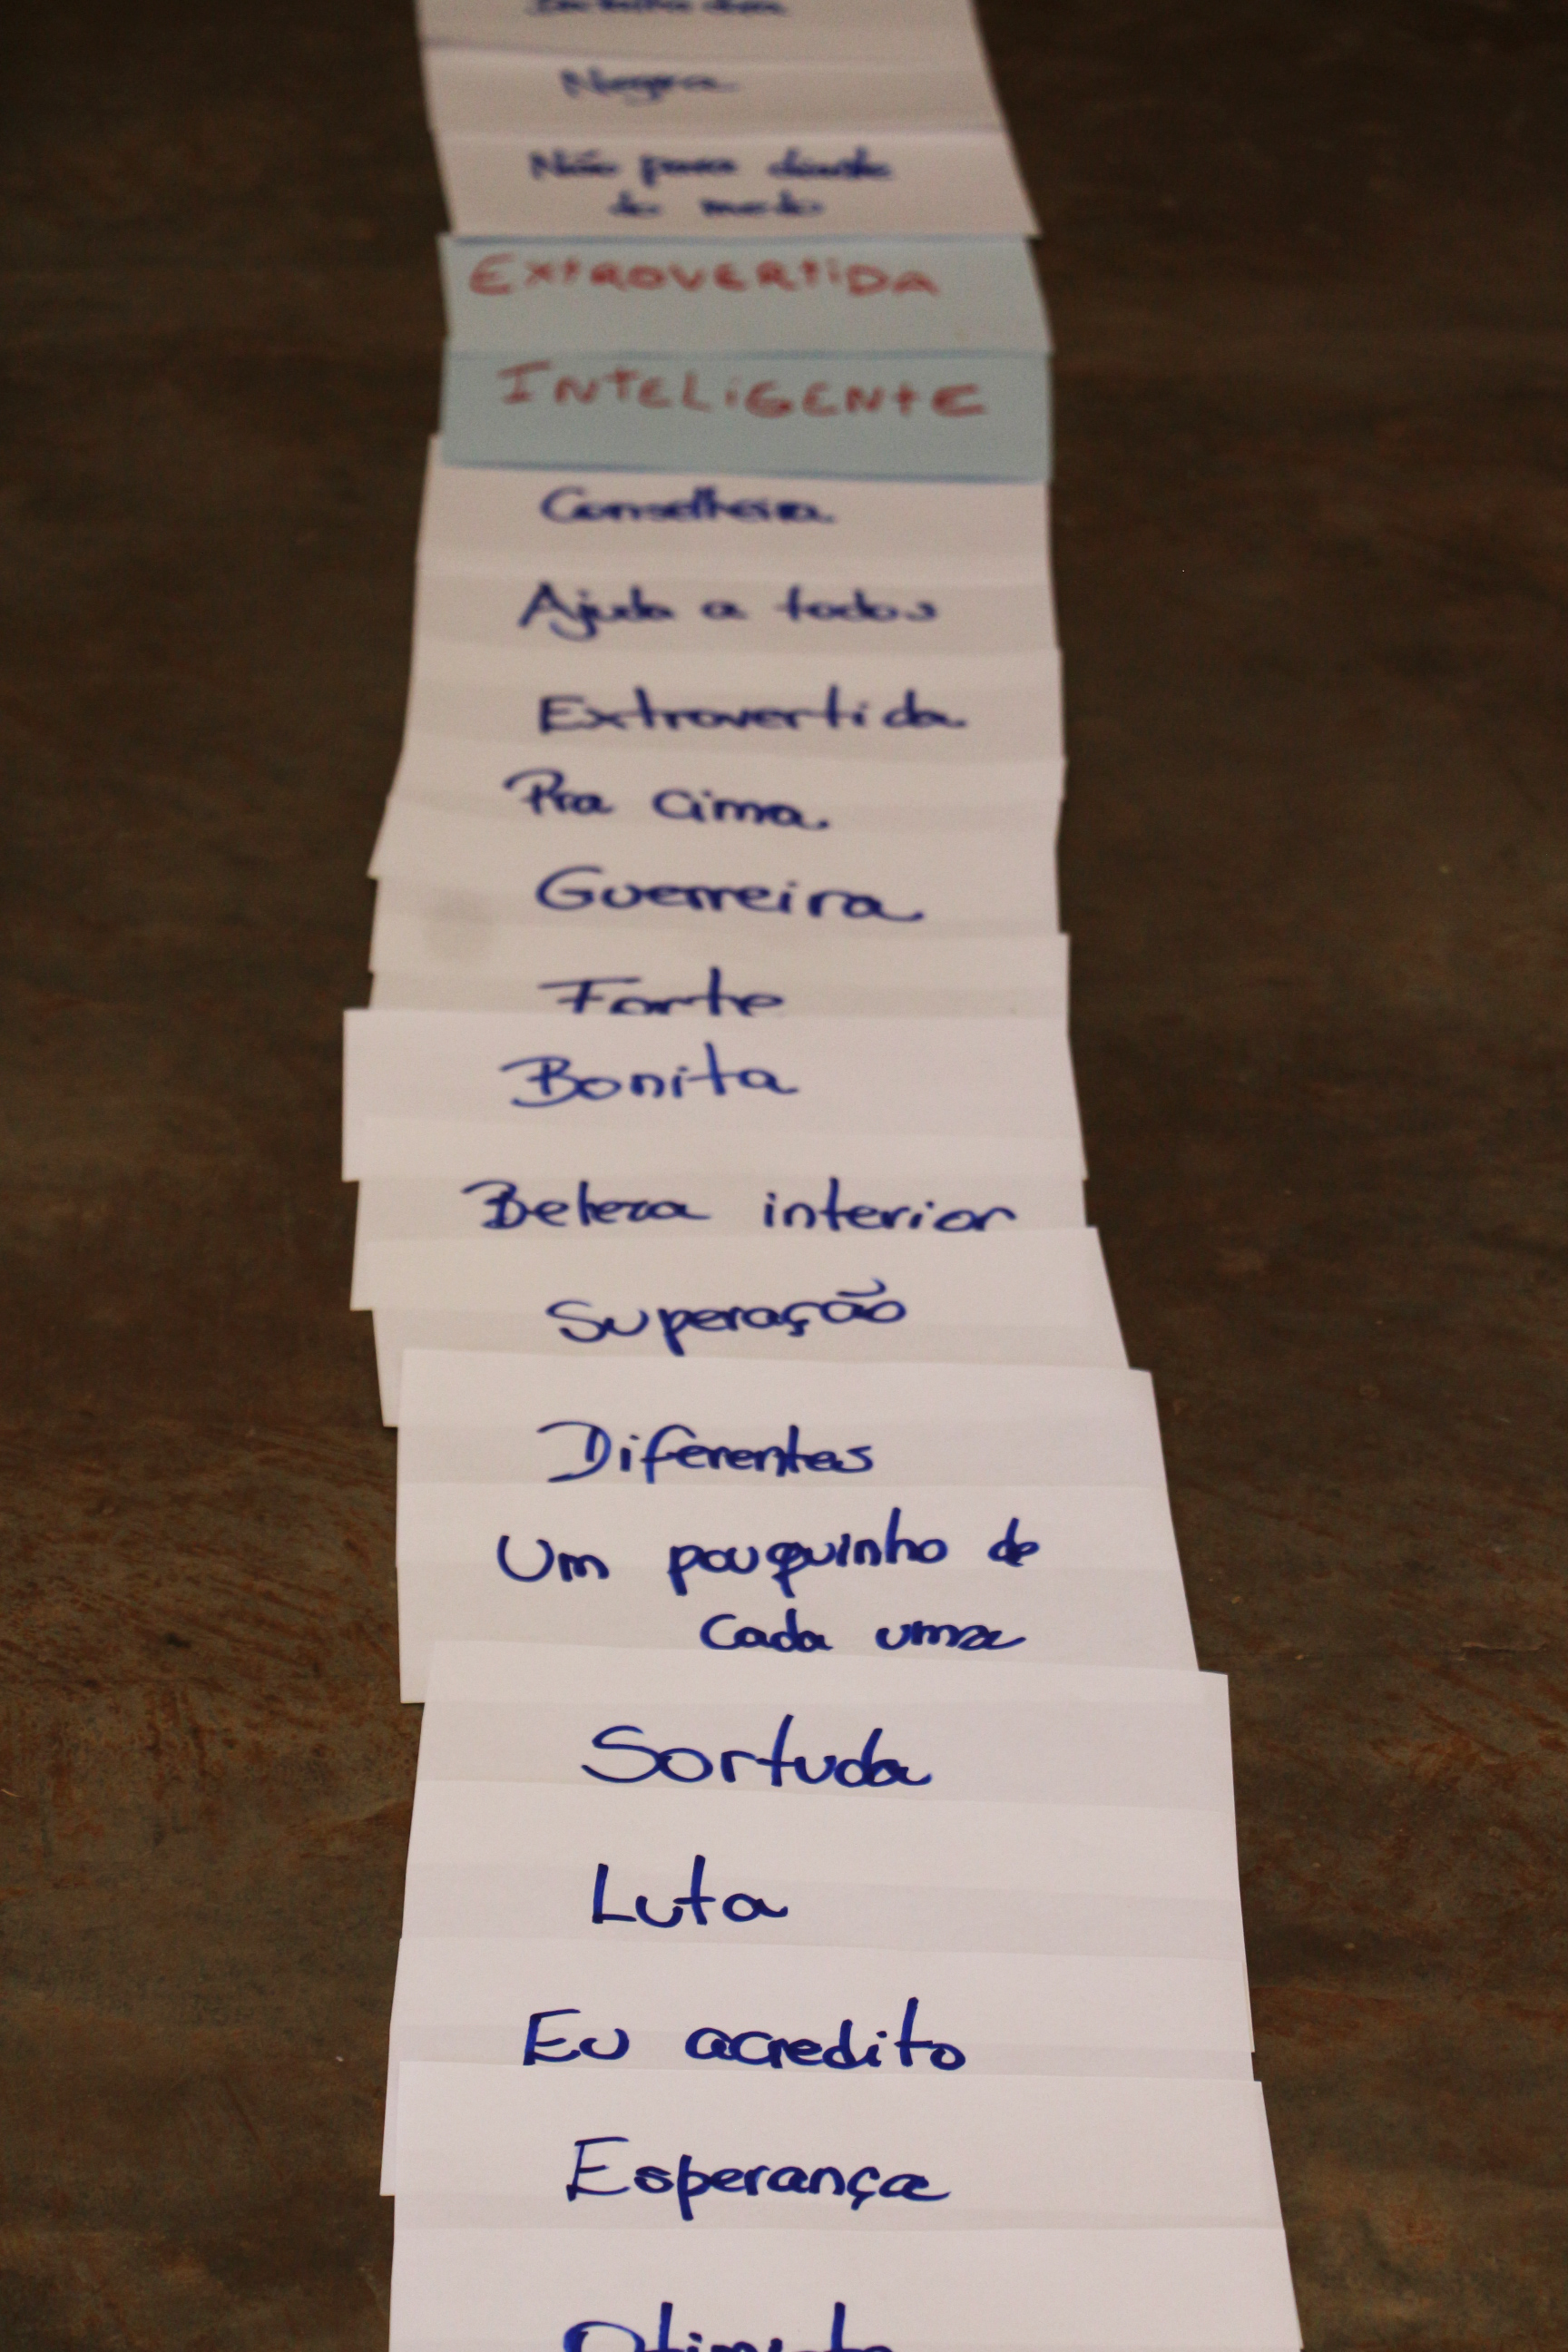 Negra
Não para diante
do medo
EXTROVERTIDA
INTELIGENTE
Conselheira
Ajuda a todos
Extrovertida
Pra cima
Guerreira
Forte
Bonita
Beleza interior
Superação
Diferentes
Um pouquinho de
cada uma
Sortuda
Luta
Eu acredito
Esperança